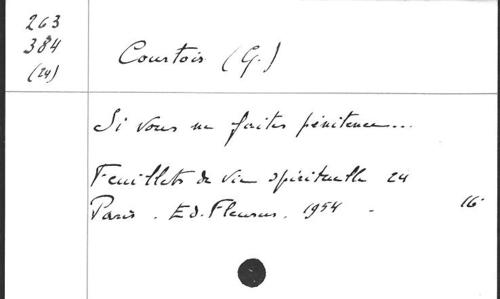 263
384
(24)
Courtois (G.)
Si vous ne faites pénitence...
Feuillets de vie spirituelle 24
Paris. Ed. Fleurus. 1954 - 16°